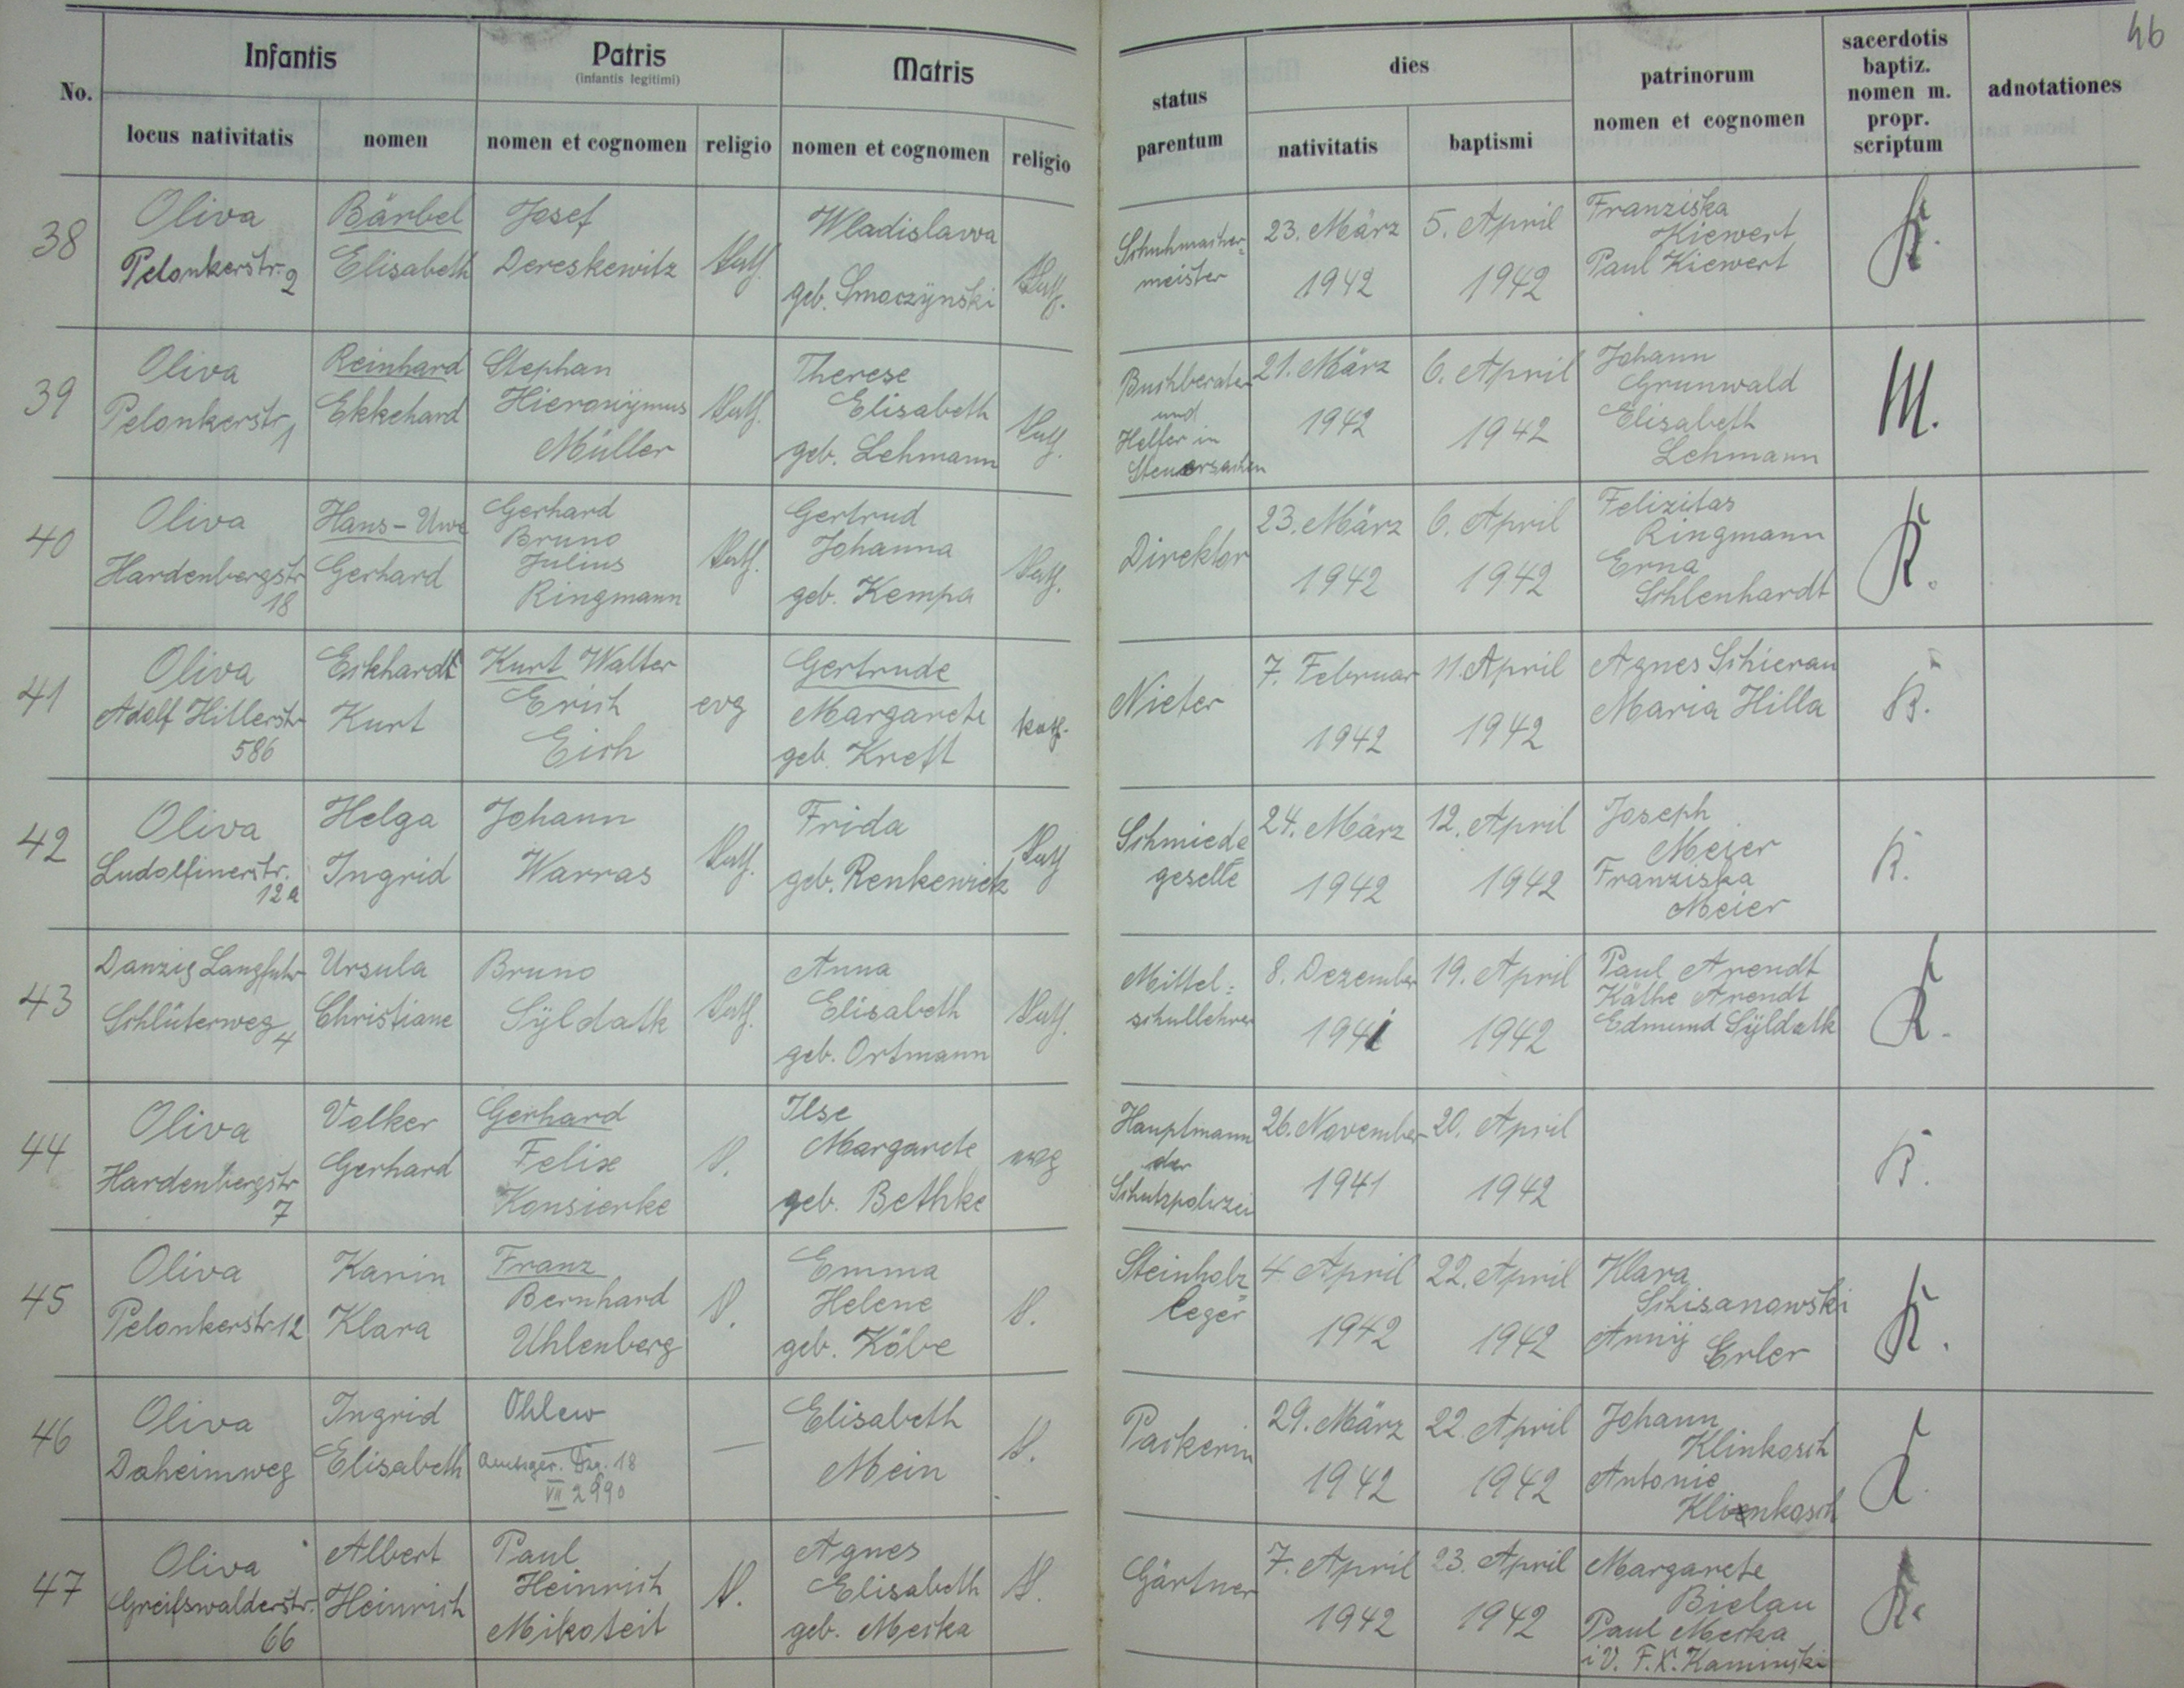 46
No.
Infantis
locus nativitatis
nomen
Patris
(infantis legitimi)
nomen et cognomen
religio
Matris
nomen et cognomen
religio
status
parentum
dies
nativitatis
baptismi
patrinorum
nomen et cognomen
sacerdotis
baptiz.
nomen m.
propr.
scriptum
adnotationes
38
Oliva
Pelonkerstr. 2
Bärbel
Elisabeth
Josef
Dereskewitz
kath.
Wladislawa
geb. Smoczynski
kath.
Schuhmacher-
meister
23. März
1942
5. April
1942
Franziska
Kiewert
Paul Kiewert
K.
39
Oliva
Pelonkerstr. 1
Reinhard
Ekkehard
Stephan
Hieronymus
Müller
kath.
Therese
Elisabeth
geb. Lehmann
kath.
Buchberater
und
Helfer in
Steuersachen
21. März
1942
6. April
1942
Johann
Grunwald
Elisabeth
Lehmann
M.
40
Oliva
Hardenbergstr
18
Hans-Uwe
Gerhard
Gerhard
Bruno
Julius
Ringmann
kath.
Gertrud
Johanna
geb. Kempa
kath.
Direktor
23. März
1942
6. April
1942
Felizitas
Ringmann
Erna
Schlenhardt
K.
41
Oliva
Adolf Hitlerstr
586
Eckhardt
Kurt
Kurt Walter
Erich
Eich
evg
Gertrude
Margarete
geb. Kreft
kath.
Nieter
7. Februar
1942
11. April
1942
Agnes Schierau
Maria Hilla
K.
42
Oliva
Ludolfinerstr.
12a
Helga
Ingrid
Johann
Warras
kath.
Frida
geb. Renkewitz
kath
Schmiede
geselle
24. März
1942
12. April
1942
Joseph
Meier
Franziska
Meier
K.
43
Danzig Langfuhr
Schlüterweg 4
Ursula
Christiane
Bruno
Syldatk
kath.
Anna
Elisabeth
geb. Ortmann
kath.
Mittel-
schullehrer
8. Dezember
1941
19. April
1942
Paul Arendt
Käthe Arendt
Edmund Syldatk
K.
44
Oliva
Hardenbergstr
7
Volker
Gerhard
Gerhard
Felix
Konsierke
k.
Ilse
Margarete
geb. Bethke
evg
Hauptmann
der
Schutzpolizei
26. November
1941
20. April
1942
K.
45
Oliva
Pelonkerstr 12
Karin
Klara
Franz
Bernhard
Uhlenberg
k.
Emma
Helene
geb. Köbe
k.
Steinholz-
leger
4 April
1942
22. April
1942
Klara
Schisanowski
Anny Erler
K.
46
Oliva
Daheimweg
Ingrid
Elisabeth
Amtsger. Dzg. 18
VII 2990
—
Elisabeth
Mein
k.
Packerin
29. März
1942
22. April
1942
Johann
Klinkosch
Antonie
Klinkosch
K.
47
Oliva
Greifswalderstr.
66
Albert
Heinrich
Paul
Heinrich
Mikoteit
k.
Agnes
Elisabeth
geb. Merka
k.
Gärtner
7. April
1942
23. April
1942
Margarete
Bielau
Paul Merka
i V. F. X. Kaminski
K.